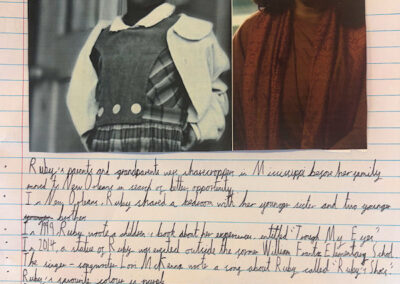 Ruby's parents and grandparents were sharecroppers in Mississippi before her family
moved to New Orleans in search of better opportunity.
In New Orleans, Ruby shared a bedroom with her younger sister and two younger
younger brothers
In 1999 Ruby wrote a children's book about her experiences, entitled "Through My Eyes".
In 2014, a statue of Ruby was erected outside the former William Frantz Elementary School.
The singer-songwriter Lori McKenna wrote a song about Ruby called "Ruby's Shoes"
Ruby's favourite colour is purple